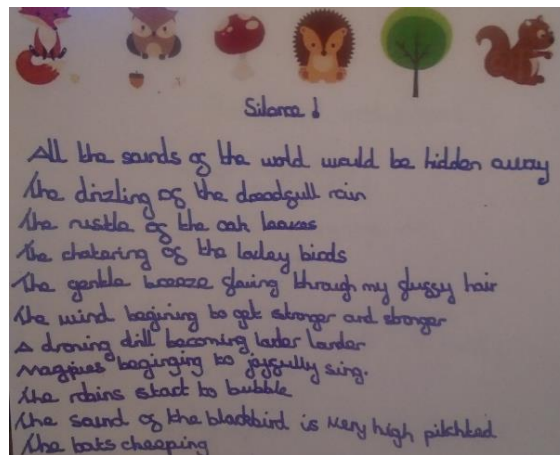 Silence!
All the sounds of the world would be hidden away
The drizling of the dreadfull rain
The rustle of the oak leaves
The chatering of the birds
The gentle breeze through my fluffy hair
The wind begining to get stronger and stronger
A droning drill becoming
Magpies to joyfully sing.
The robins start to bubble
The sound of the blackbird is very high pitchted
The bats cheeping